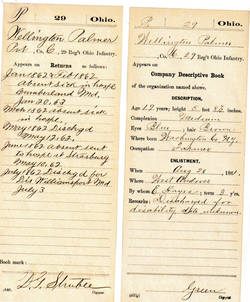 P | 29 | Ohio.
Wellington Palmer
Pvt., Co. C, 29 Reg't Ohio Infantry.
Appears on
Returns as follows:
Jan 1862 & Feb 1862
absent sick in
hospl. Cumberland Md.
Jan 20. 62
Mar 1862 absent sick
in hospl.
May 1862 Dischg'd
May 2. 1862.
June 1862 absent sent
to hospl. at Strasburg
May 10. 62
July 1862 Dischg'd for
Dis. Williamsport Md
July 3
Book mark:
Copyist.
P | 29 | Ohio.
Wellington Palmer
Co. C, 29 Reg't Ohio Infantry.
Appears on
Company Descriptive Book
of the organization named above.
DESCRIPTION.
Age 19 years; height 5 feet inches.
Complexion Medium
Eyes Blue; hair Brown
Where born Washington Co. N.Y.
Occupation Farmer
ENLISTMENT.
When Aug 26, 1861.
Where West Andover
By whom E. Hayes; term 3 y'rs.
Remarks: Discharged for
disability
Green
Copyist.